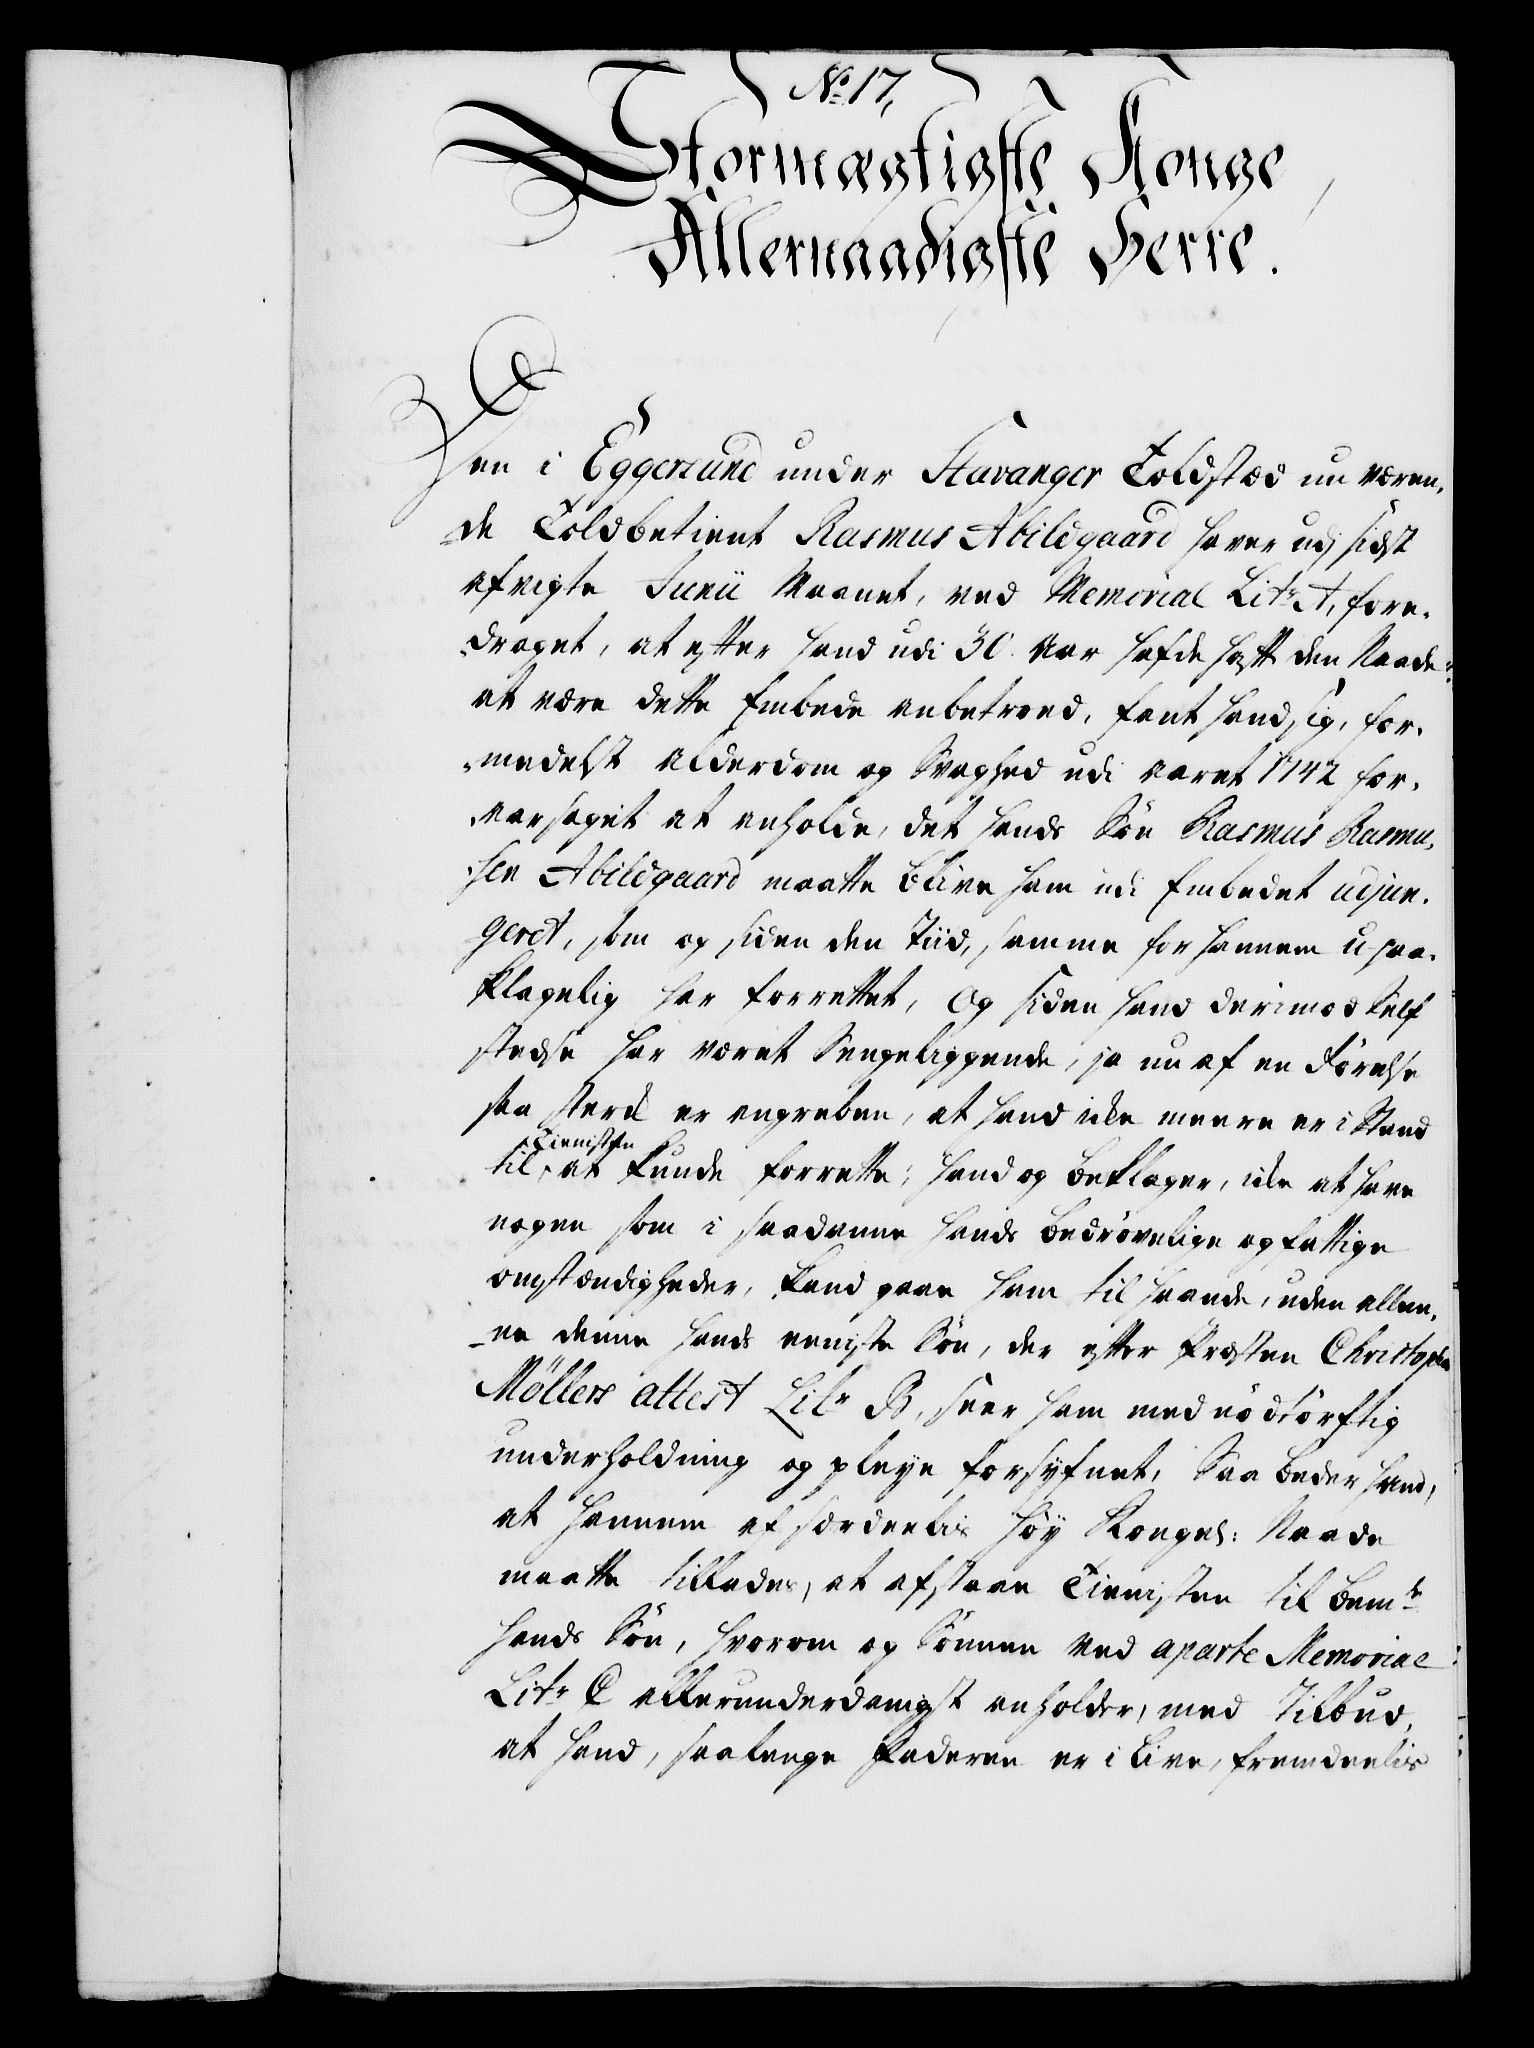 No. 17.
Stormægtigste Konge
Allernaadigste Herre.
Den i Eggersund under Stavanger Toldstæd nu væren-
de Toldbetient Rasmus Abildgaard haver udj sidst
afvigte Junii Maanet, ved Memorial Litr. A, fore-
draget, at efter hand udi 30 Aar hafde haft den Naade
at være dette Embede anbetroed, fant hand sig, for-
medelst alderdom og Svaghed udi aaret 1742 for-
aarsaget at anholde, det hands Søn Rasmus Rasmu-
sen Abildgaard maatte blive ham udi Embedet adjun-
geret, som og siden den Tiid, samme for hannem upaa-
klagelig har forrettet, Og siden hand derimod Self
stedse har været Sengeliggende, ja nu af en Førelse
saa sterk er angreben, at hand icke meere er i Stand
til, Tienisten at kunde forrette; hand og beklager, icke at have
nogen som i saadanne hands bedrøvelige og fattige
omstændigheder, kand gaae ham til haande, uden allee-
ne denne hands eeniste Søn, der efter Præsten Christopher
Møllers attest Litr B, seer ham med nødtørftig
underholdning og pleye forsÿfnet, Saa beder hand,
at hannem af særdeelis høÿ Kongel: Naade
maatte tillades, at afstaae Tienisten til bemte
hands Søn, hvorom og Sønnen ved aparte Memorial
Litr C allerunderdanigst anholder, med Tilbud,
at hand, saalenge Faderen er i Live, fremdeelis